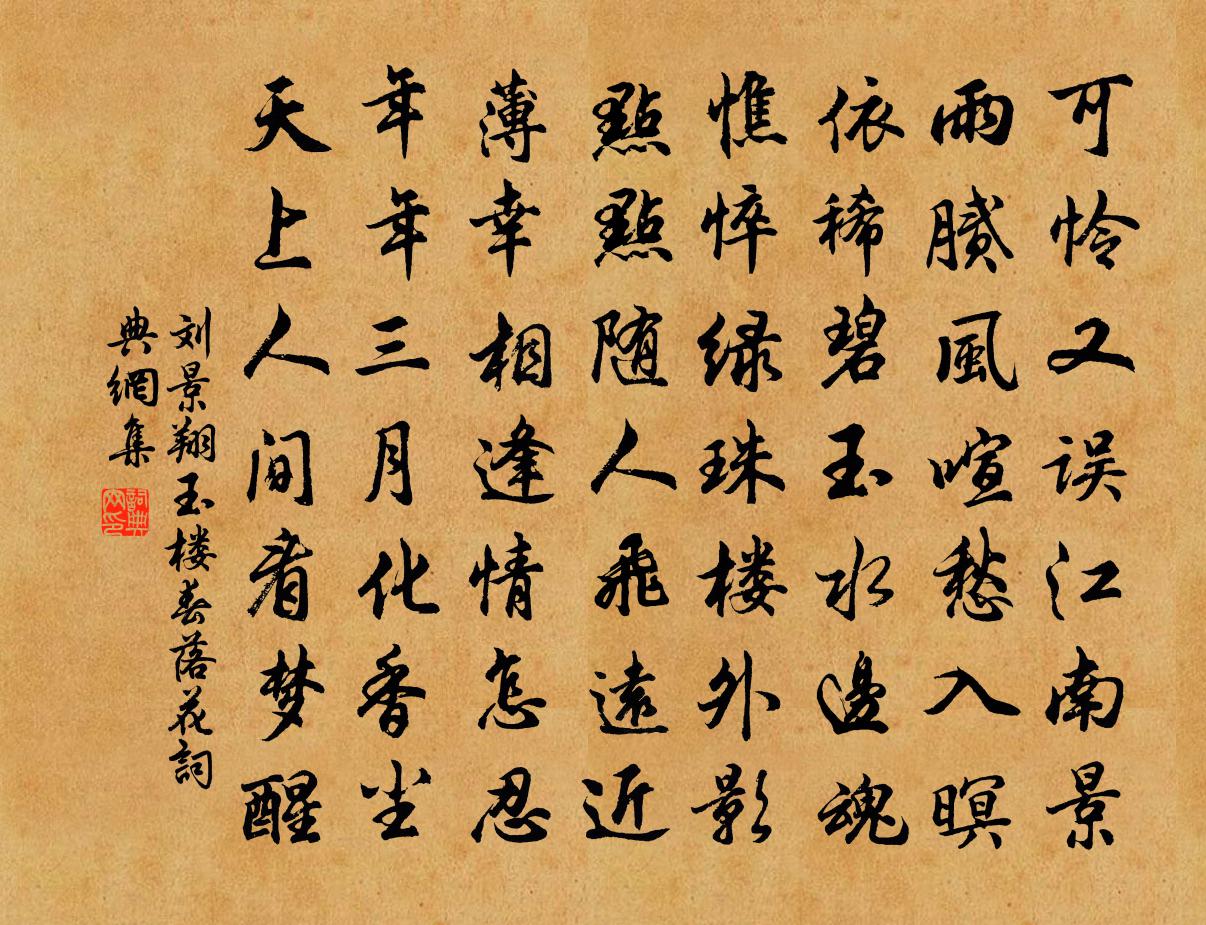 可怜又误江南景
雨腻風喧愁入暝
依稀碧玉水邊魂
憔悴绿珠楼外影
點點随人飛遠近
薄幸相逢情怎忍
年年三月化香尘
天上人间看梦醒
刘景翔玉楼春落花詞
典網集
詞典
网印